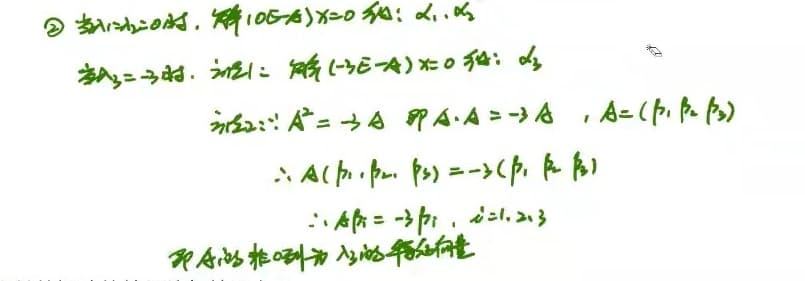 ② 当λ₁=λ₂=0时, 解(0E-A)x=0 得: α₁, α₂
当λ₃=-3时, 法1: 解(-3E-A)x=0 得: α₃
法2: ∵ A²=-3A 即 A·A=-3A , A=(β₁ β₂ β₃)
∴ A(β₁, β₂, β₃)=-3(β₁ β₂ β₃)
∴ Aβᵢ=-3βᵢ, i=1.2.3
即A的非0列为λ₃的特征向量